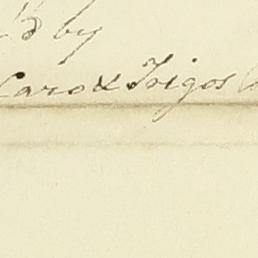 by
Caro & Trigos